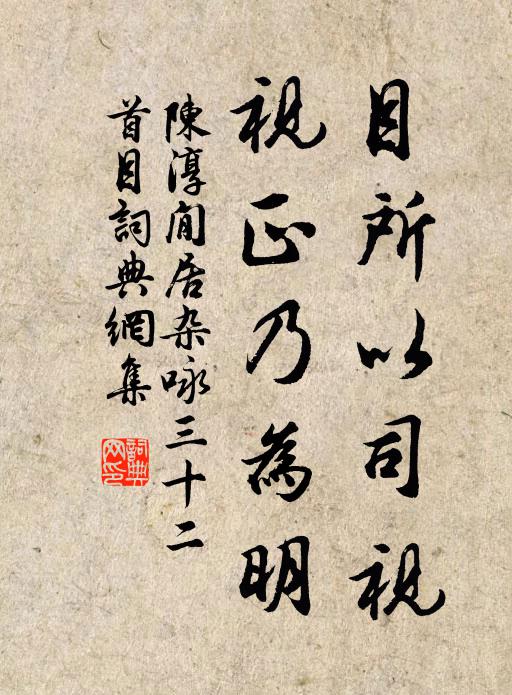 目所以司視
視正乃為明
陳淳閒居杂咏三十二
首目詞典網集
詞典網印